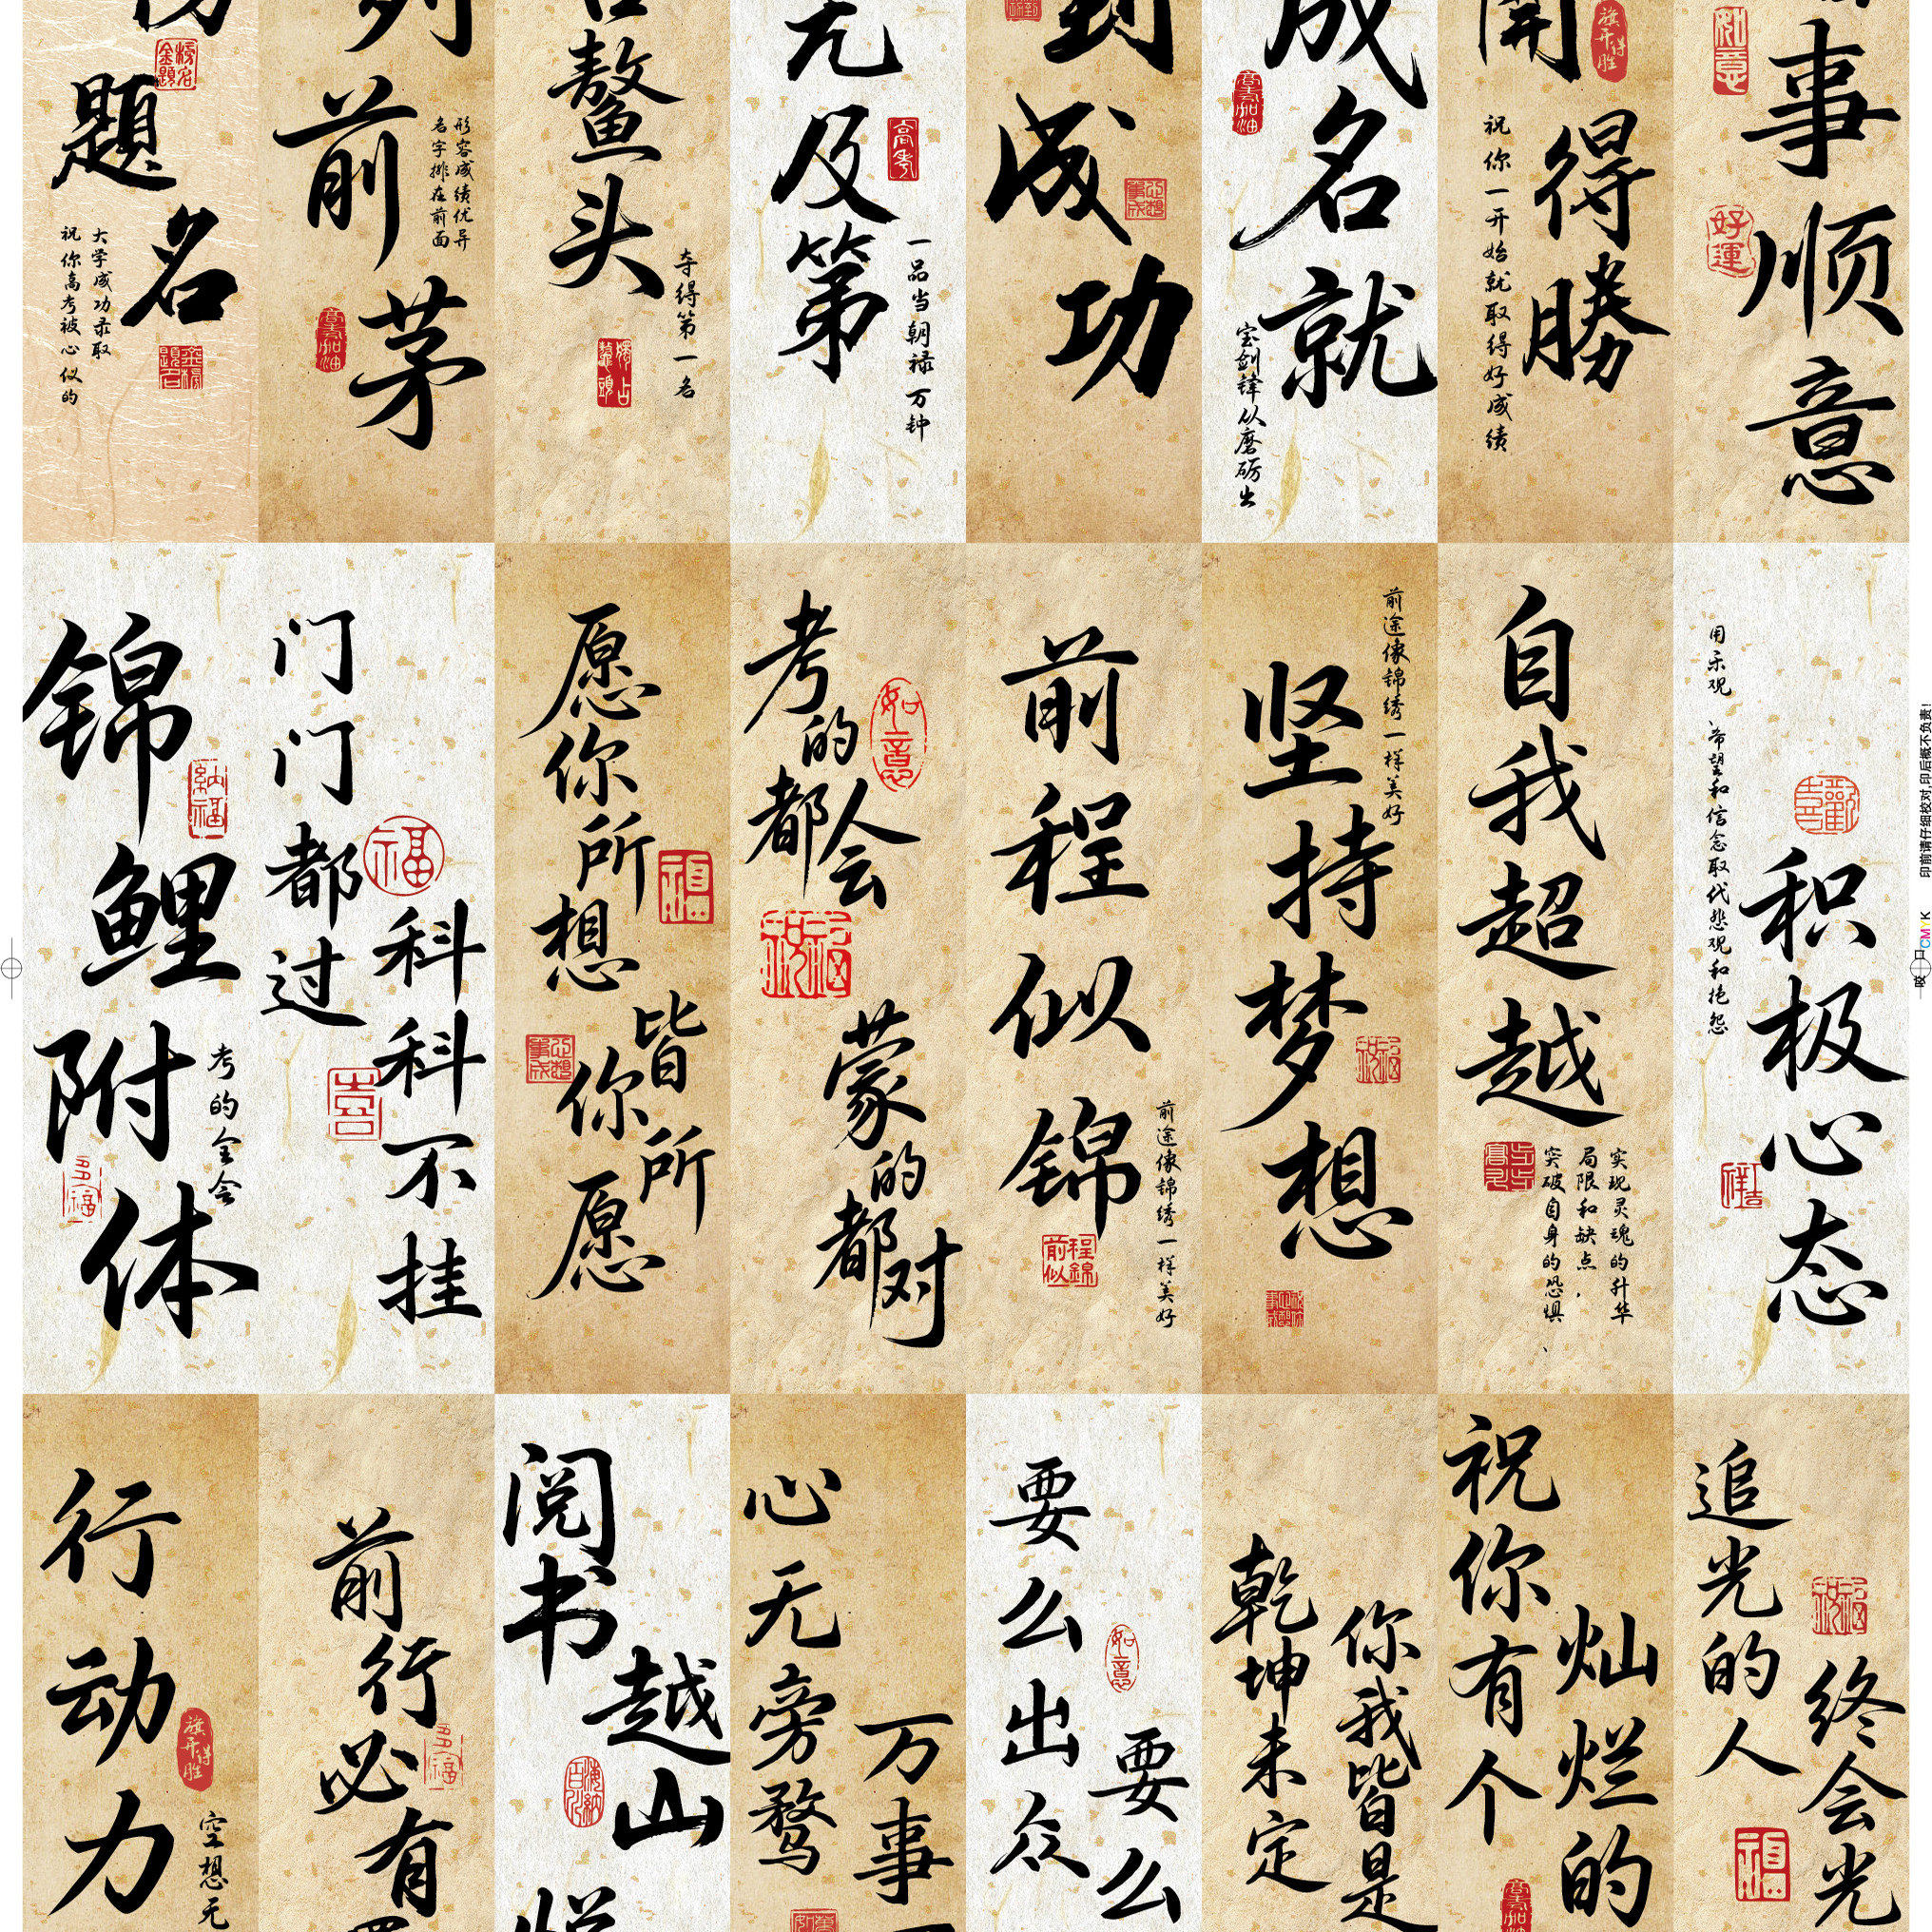 题
名
大学成功录取
祝你高考被心仪的
列
前
茅
形容成绩优异
名字排在前面
鳌
头
夺得第一名
元
及
第
一品当朝禄万钟
到
成
功
成
名
就
宝剑锋从磨砺出
開
得
勝
祝你一开始就取得好成绩
旗开得胜
事
顺
意
好運
锦
鲤
附
体
考的全会
納福
门门都过
科科不挂
福
愿你所想
皆你所愿
考的都会
蒙的都对
如意
前程似锦
前途像锦绣一样美好
前程似錦
坚持梦想
前途像锦绣一样美好
自我超越
实现灵魂的升华
局限和缺点，
突破自身的恐惧、
积极心态
用乐观、希望和信念取代悲观和抱怨
印前请仔细校对,印后概不负责!
CMYK
咬口
行动力
空想无
旗开得胜
前行必有
多福
阅书
越山
悦
海納百川
心无旁骛
万事
要么出众
要么
如意
乾坤未定
你我皆是
祝你有个
灿烂的
追光的人
终会光